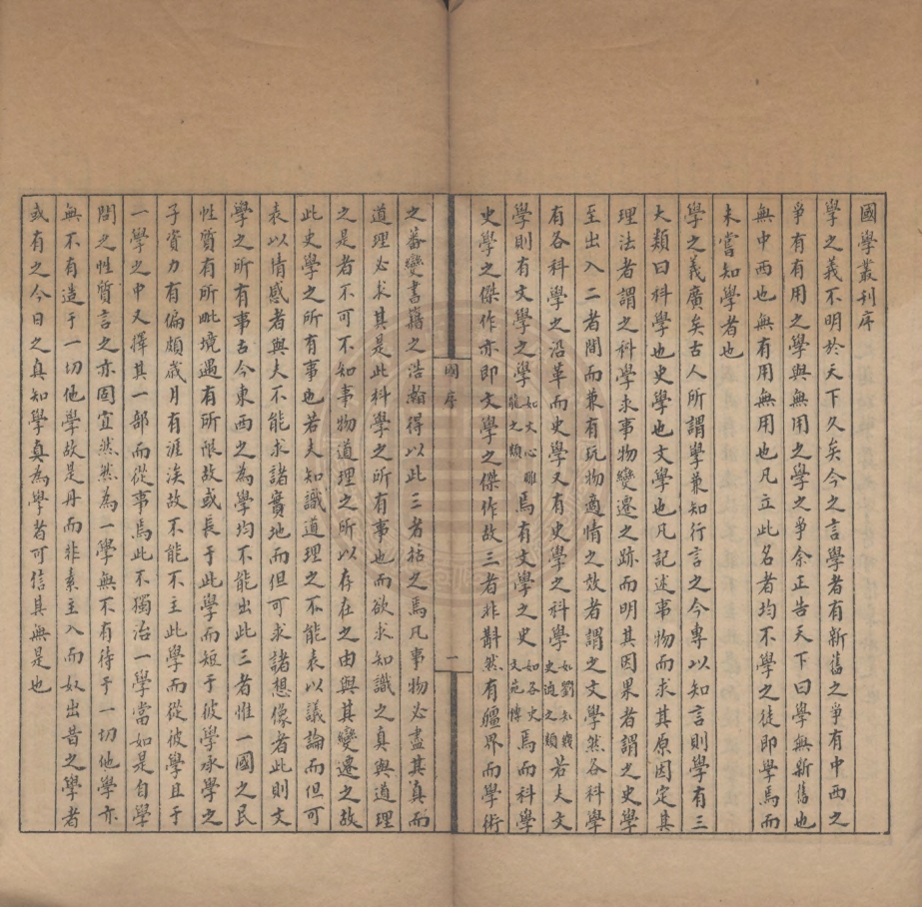 國學叢刊序
學之義不明於天下久矣今之言學者有新舊之爭有中西之
爭有有用之學與無用之學之爭余正告天下曰學無新舊也
無中西也無有用無用也凡立此名者均不學之徒即學焉而
未嘗知學者也
學之義廣矣古人所謂學兼知行言之今專以知言則學有三
大類曰科學也史學也文學也凡記述事物而求其原因定其
理法者謂之科學求事物變遷之跡而明其因果者謂之史學
至出入二者間而兼有玩物適情之效者謂之文學然各科學
有各科學之沿革而史學又有史學之科學如劉知幾史通之類若夫文
學則有文學之學如文心雕龍之類焉有文學之史如各史文苑傳焉而科學
史學之傑作亦即文學之傑作故三者非斠然有疆界而學術
國序
一
之蕃變書籍之浩瀚得以此三者括之焉凡事物必盡其真而
道理必求其是此科學之所有事也而欲求知識之真與道理
之是者不可不知事物道理之所以存在之由與其變遷之故
此史學之所有事也若夫知識道理之不能表以議論而但可
表以情感者與夫不能求諸實地而但可求諸想像者此則文
學之所有事古今東西之為學均不能出此三者惟一國之民
性質有所毗境遇有所限故或長于此學而短于彼學承學之
子資力有偏頗歲月有涯涘故不能不主此學而從彼學且于
一學之中又擇其一部而從事焉此不獨治一學當如是自學
問之性質言之亦固宜然然為一學無不有待于一切他學亦
無不有造于一切他學故是丹而非素主入而奴出昔之學者
或有之今日之真知學真為學者可信其無是也